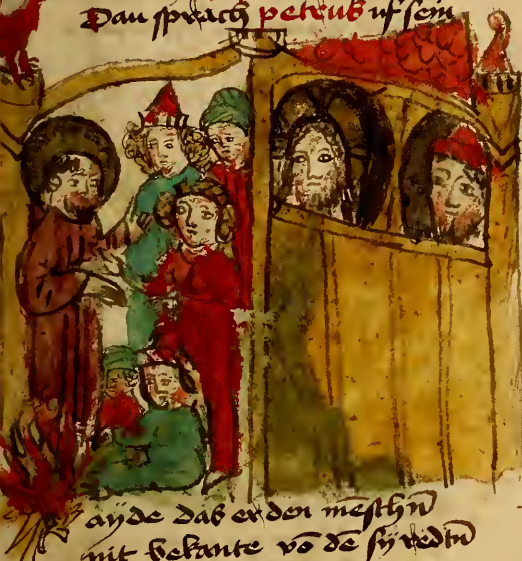 Dan sprach petrus uf sein
ayde das er den mēschn̄
nit bekante vō dē sy redtn̄